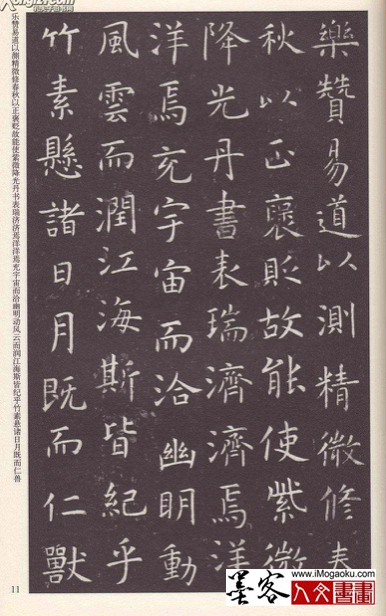 樂贊易道以測精微修春
秋以正褒貶故能使紫微
降光丹書表瑞濟濟焉洋
洋焉充宇宙而洽幽明動
風雲而潤江海斯皆紀乎
竹素懸諸日月既而仁獸
乐赞易道以测精微修春秋以正褒贬故能使紫微降光丹书表瑞济济焉洋洋焉充宇宙而洽幽明动风云而润江海斯皆纪乎竹素悬诸日月既而仁兽
11
墨客
www.iMogaoku.com
人文書畫